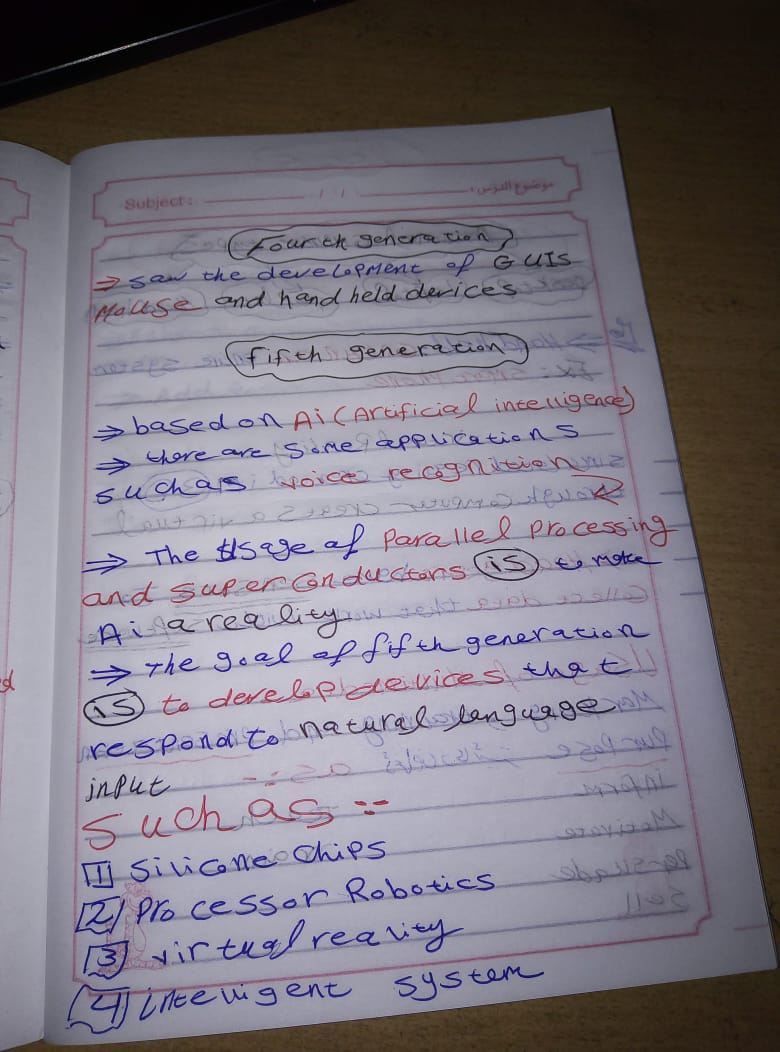 Subject: / / موضوع الدرس :
Fourth generation
⇒ saw the development of GUIS
Mouse and hand held devices
fifth generation
⇒ based on Ai (Artificial intelligence)
⇒ there are some applications
such as voice recognition
⇒ The Usage of Parallel Processing
and super conductors is to make
Ai a reality
⇒ The goal of fifth generation
is to develop devices that
respond to natural language
input
Such as :-
1 Silicone Chips
2 Processor Robotics
3 virtual reality
4 intelligent system